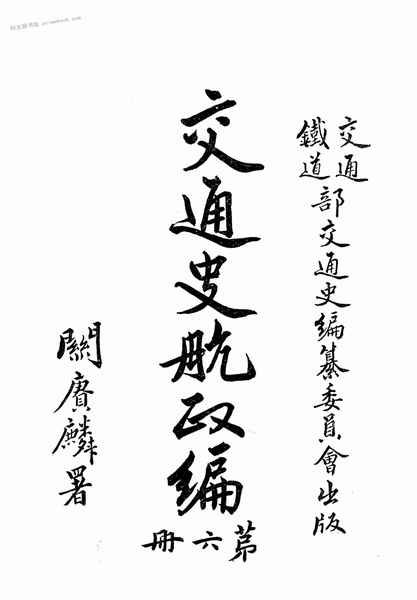 交通
鐵道
部交通史編纂委員會出版
交通史航政編
第六册
關賡麟署